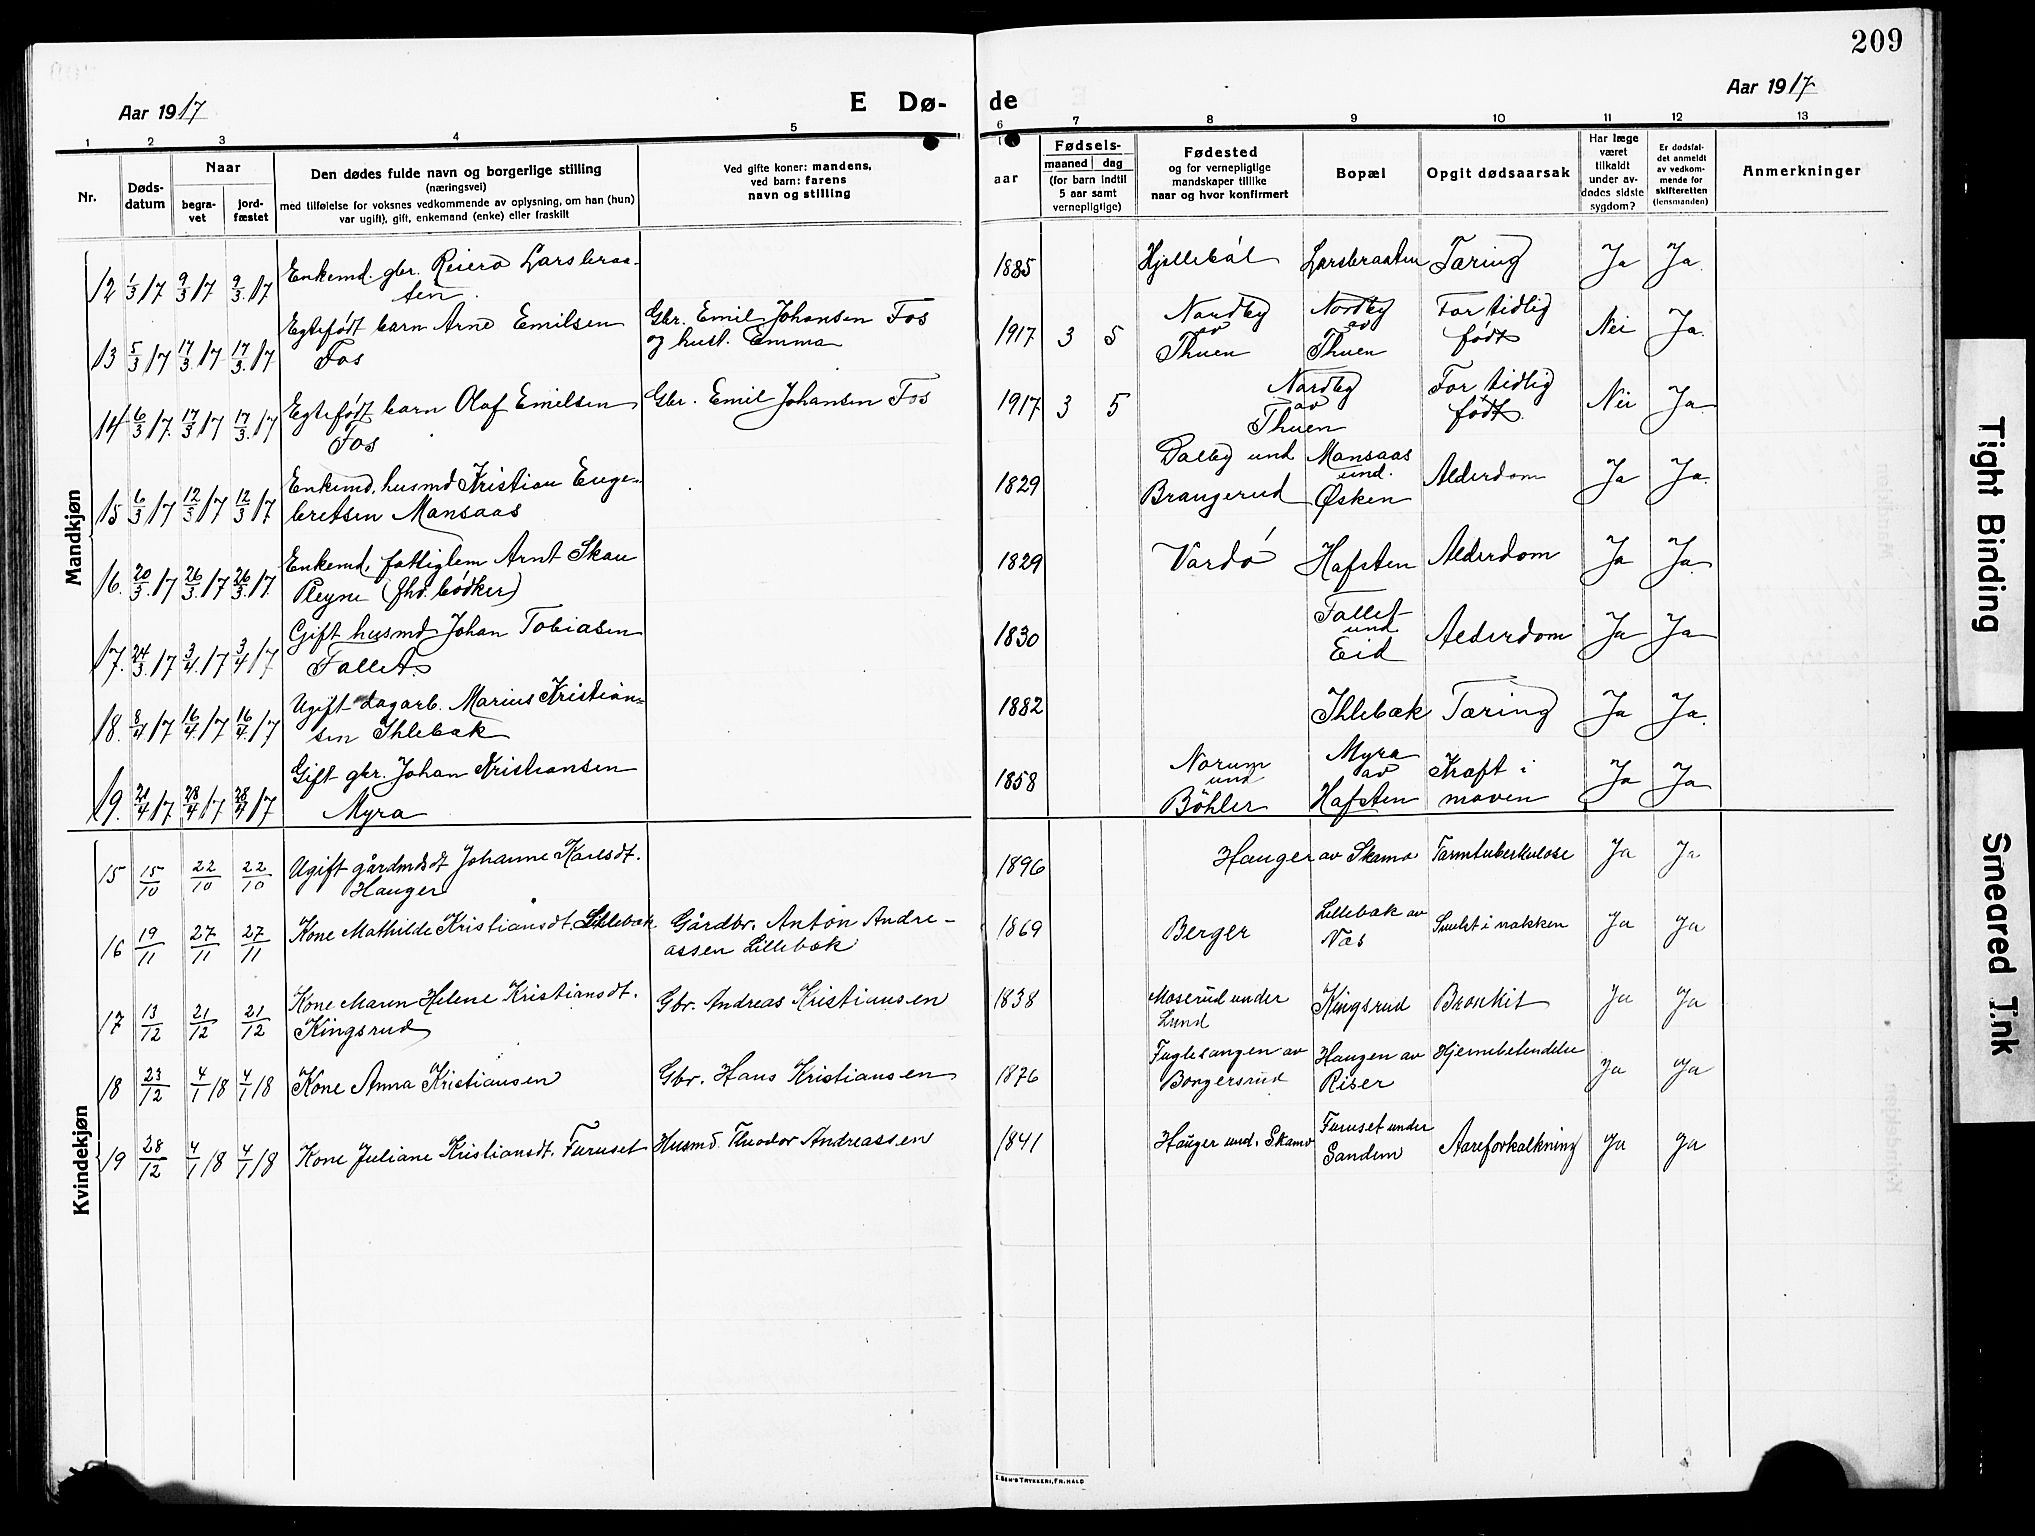 209
Aar 1917
E Dø-
de
Aar 1917
1 2 3 4 5 6 7 8 9 10 11 12 13
Nr.
Døds-
datum
Naar
begra-
vet
jord-
fæstet
Den dødes fulde navn og borgerlige stilling
(næringsvei)
med tilføielse for voksnes vedkommende av oplysning, om han (hun)
var ugift, gift, enkemand (enke) eller fraskilt
Ved gifte koner: mandens,
ved barn: farens
navn og stilling
aar
Fødsels-
maaned dag
(for barn indtil
5 aar samt
vernepligtige)
Fødested
og for vernepligtige
mandskaper tillike
naar og hvor konfirmert
Bopæl
Opgit dødsaarsak
Har læge
været
tilkaldt
under av-
dødes sidste
sygdom?
Er dødsfal-
det anmeldt
av vedkom-
mende for
skifteretten
(lensmanden)
Anmerkninger
Mandkjøn
12 1/3 17 9/3 17 9/3 17 Enkemd. gbr. Reiero Larsbraa-
ten. 1885 Hjellebøl Larsbraaten Tæring Ja Ja
13 5/3 17 17/3 17 17/3 17 Egtefødt barn Arne Emilsen
Fos Gbr. Emil Johansen Fos
og hust. Emma 1917 3 5 Nordby
av
Thuen Nordby
av
Thuen For tidlig
født Nei Ja.
14 6/3 17. 17/3 17 17/3 17 Egtefødt barn Olaf Emilsen
Fos Gbr. Emil Johansen Fos 1917 3 5 Nordby
av
Thuen For tidlig
født. Nei Ja
15 6/3 17 12/3 17 12/3 17 Enkemd. husmd Kristian Enge-
bretsen Mansaas 1829 Dalby und
Brangerud Mansaas
und.
Øsken Alderdom Ja Ja.
16. 20/3 17 26/3 17 26/3 17. Enkemd, fattiglem Arnt Skau
Pleyne (fhv. bødker) 1829 Vardø Hafsten Alderdom Ja Ja
17. 24/3 17 3/4 17 3/4 17 Gift husmd Johan Tobiasen
Fallet. 1830 Fallet
und
Eid Alderdom Ja Ja
18. 8/4 17 16/4 17 16/4 17 Ugift dagarb. Marius Kristian-
sen Ihlebæk 1882 Ihlebæk Tæring Ja Ja.
19. 21/4 17 28/4 17 28/4 17 Gift gbr. Johan Kristiansen
Myra 1858 Norum
und
Bøhler Myra
av
Hafsten Kræft i
maven Ja Ja
Kvindekjøn
15 15/10 22/10 22/10 Ugift gårdmdsdt Johanne Karlsdt.
Hauger 1896 Hauger av Skamo Tarmtuberkulose Ja Ja
16 19/11 27/11 27/11 Kone Mathilde Kristiansdt. Lillebæk Gårdbr. Anton Andre-
assen Lillebæk 1869 Berger Lillebæk av
Næs i nakken Ja Ja
17 13/12 21/12 21/12 Kone Maren Helene Kristiansdt.
Kingsrud Gbr. Andreas Kristiansen 1838 Moserud under
Lund Kingsrud Bronkit Ja Ja
18 23/12 4/1 18 4/1 18 Kone Anna Kristiansen Gbr. Hans Kristiansen 1876 Fuglesangen av
Bongersrud Haugen av
Riser Hjernebetændelse Ja Ja
19 28/12 4/1 18 4/1 18 Kone Juliane Kristiansdt. Furuset Husmd. Theodor Andreassen 1841 Hauger und. Skamo Furuset under
Sandem Aareforkalkning Ja Ja
S. BEH'S TRYKKERI, FR.HALD
Tight Binding
Smeared Ink